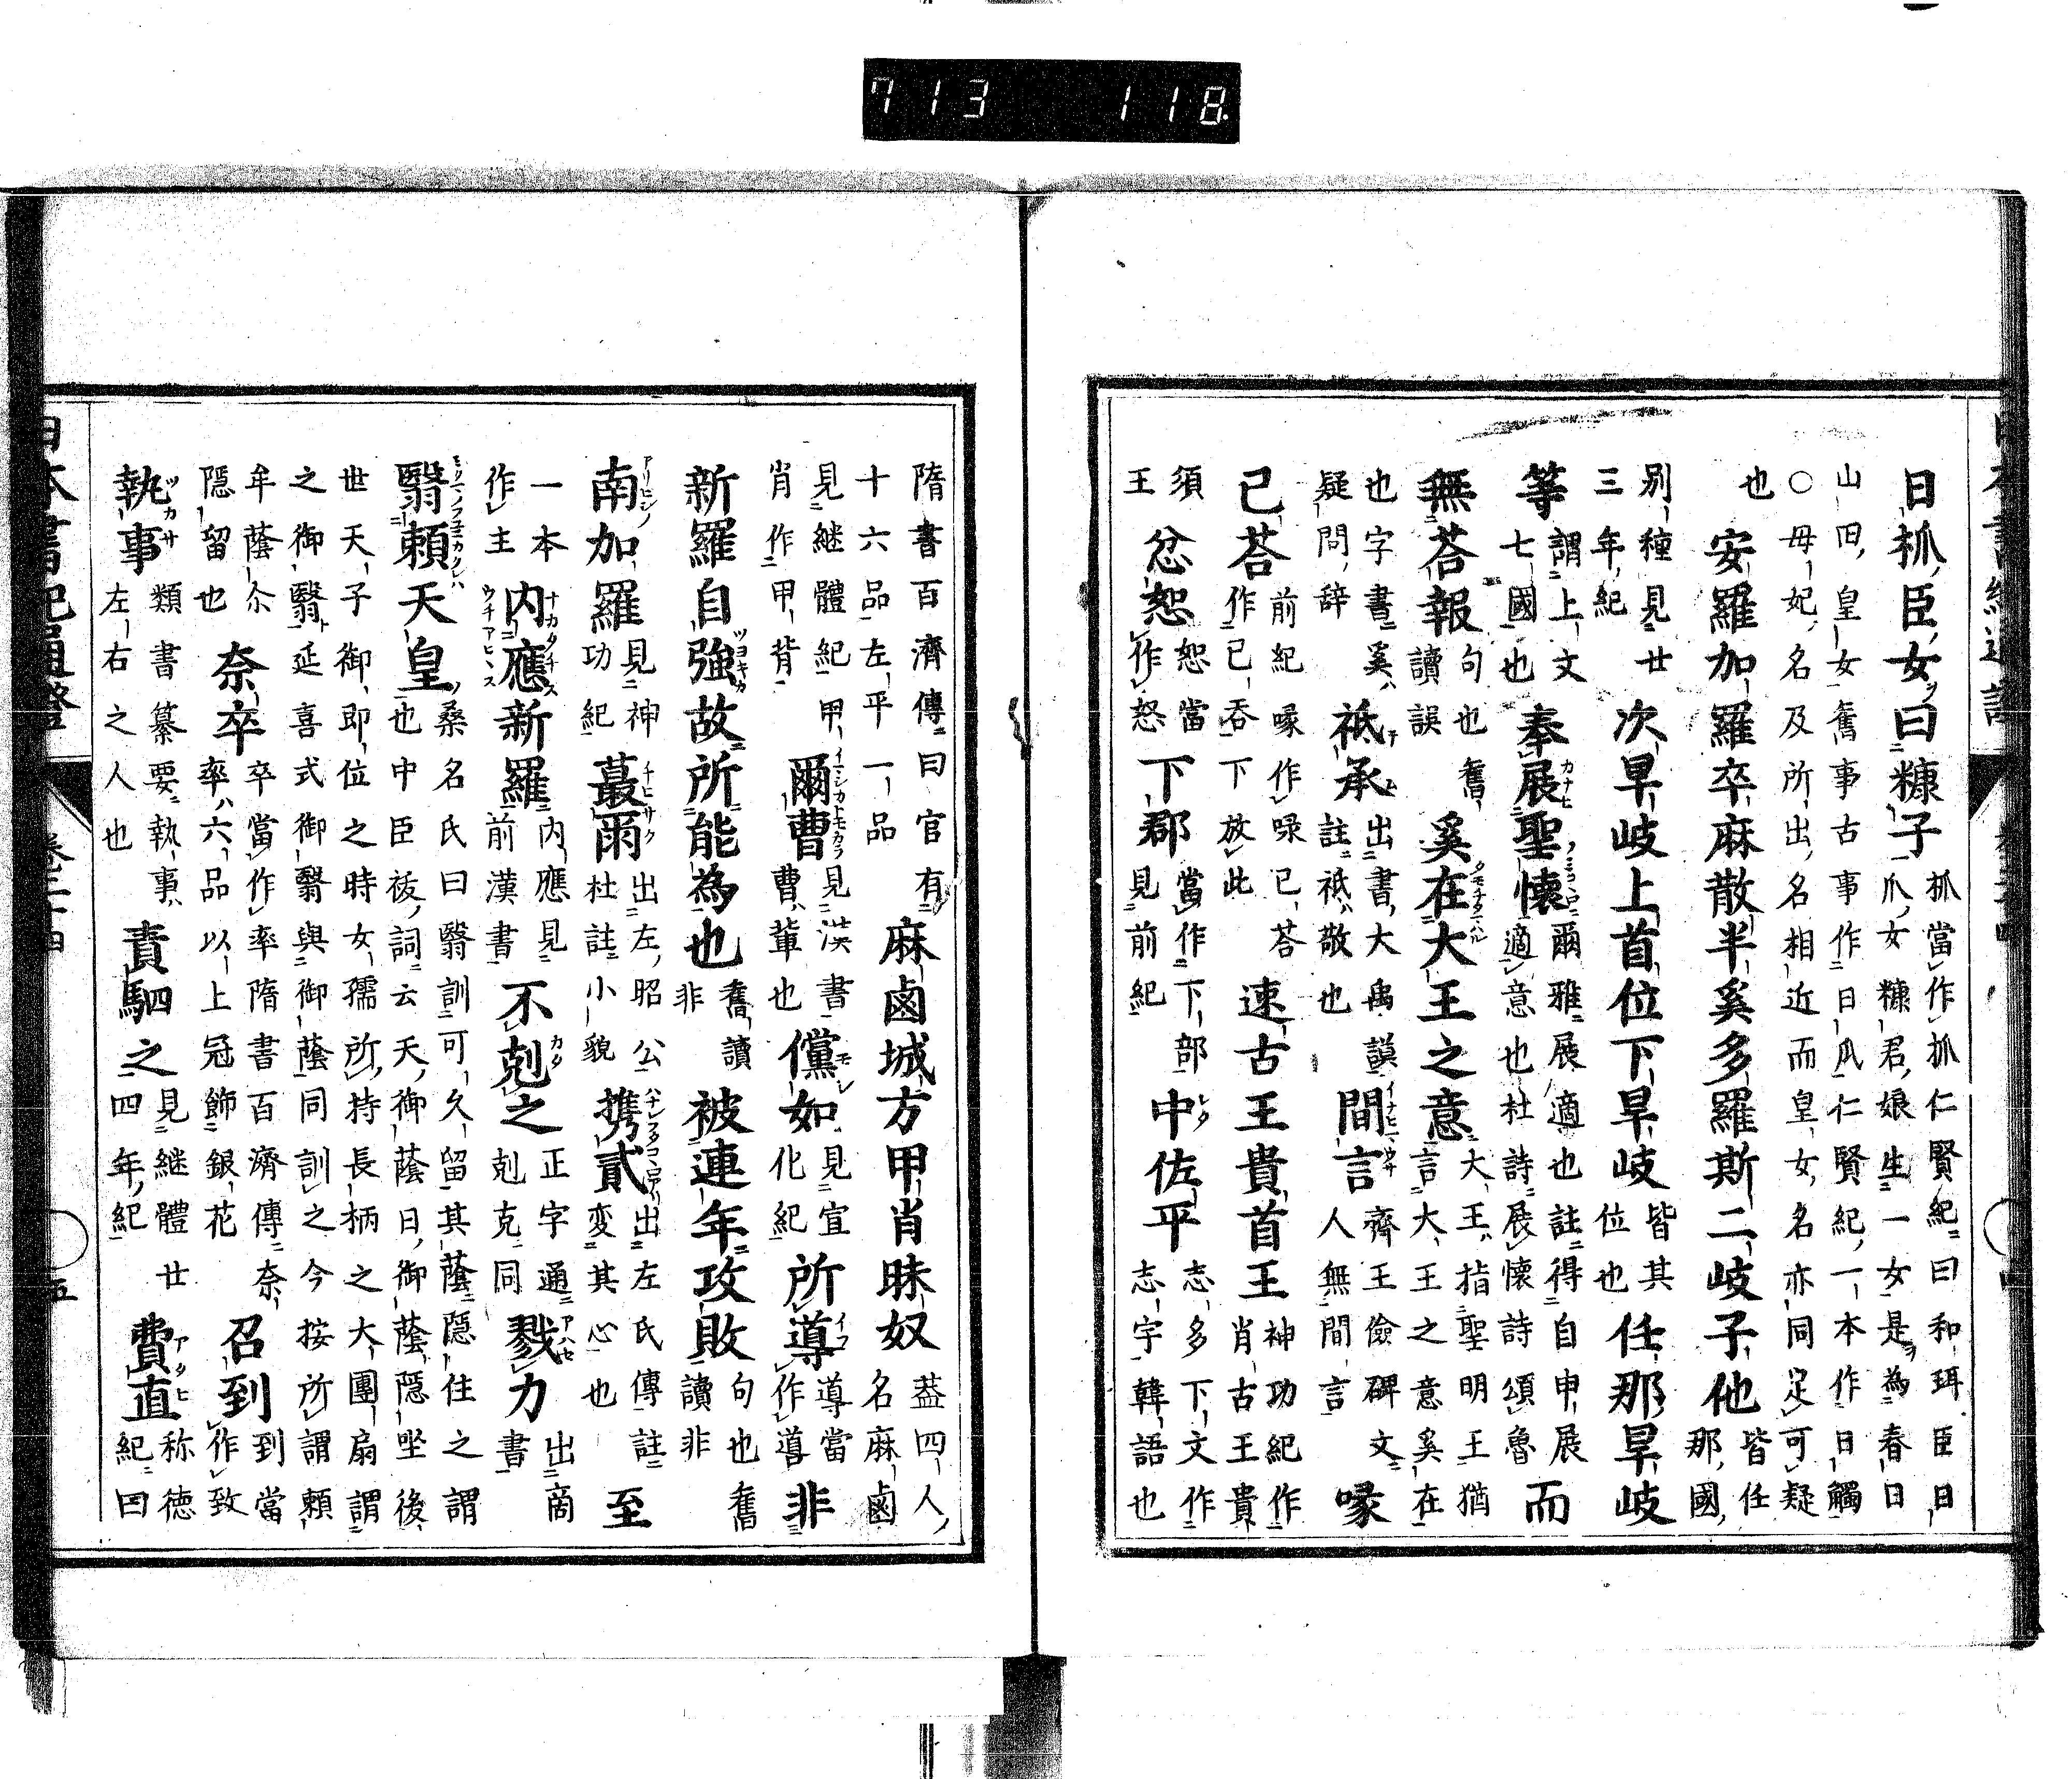 日抓臣女曰糠子
抓當作抓仁賢紀曰和珥臣日
爪女糠君娘生一女是為春日
山田皇女舊事古事作日爪仁賢紀一本作日觸
○母妃名及所出名相近而皇女名亦同定可疑
也
安羅加羅卒麻散半奚多羅斯二岐子他
皆任
那國
别種見廿
三年紀
次旱岐上首位下旱岐
皆其
位也
任那旱岐
等
謂上文
七國也
奉展聖懷
爾雅展適也註得自申展
適意也杜詩展懷詩頌魯
而
無荅報
句也舊
讀誤
奚在大王之意
大王指聖明王猶
言大王之意奚在
也字書奚
疑問辞
祗承
出書大禹謨
註祗敬也
間言
齊王儉碑文
人無間言
喙
己荅
前紀喙作㖨己荅
作已吞下放此
速古王貴首王
神功紀作
肖古王貴
須
王
忿恕
恕當
作怒
下郡
當作下部
見前紀
中佐平
志多下文作
志宇韓語也
隋書百濟傳曰官有
十六品左平一品
麻鹵城方甲肖昧奴
蓋四人
名麻鹵
見継體紀甲
肖作甲背
爾曹
見漢書
曹輩也
儻如
見宣
化紀
所導
導當
作道
非
新羅自強故所能為也
舊讀
非
被連年攻敗
句也舊
讀非
南加羅
見神
功紀
蕞爾
出左昭公
杜註小貌
携貳
出左氏傳註
変其心也
至
一本
作主
内應新羅
内應見
前漢書
不剋之
正字通
剋克同
戮力
出商
書
翳頼天皇
桑名氏曰翳訓可久留其蔭隠住之謂
也中臣祓詞云天御蔭日御蔭隠坐後
世天子御即位之時女孺所持長柄之大團扇謂
之御翳延喜式御翳與御蔭同訓之今按所謂頼
牟蔭尒
隠留也
奈卒
卒當作率隋書百濟傳奈
率六品以上冠飾銀花
召到
到當
作致
執事
類書纂要執事
左右之人也
責駟之
見継體廿
四年紀
費直
称徳
紀曰
日本書紀通證
卷二十四
五
713 118